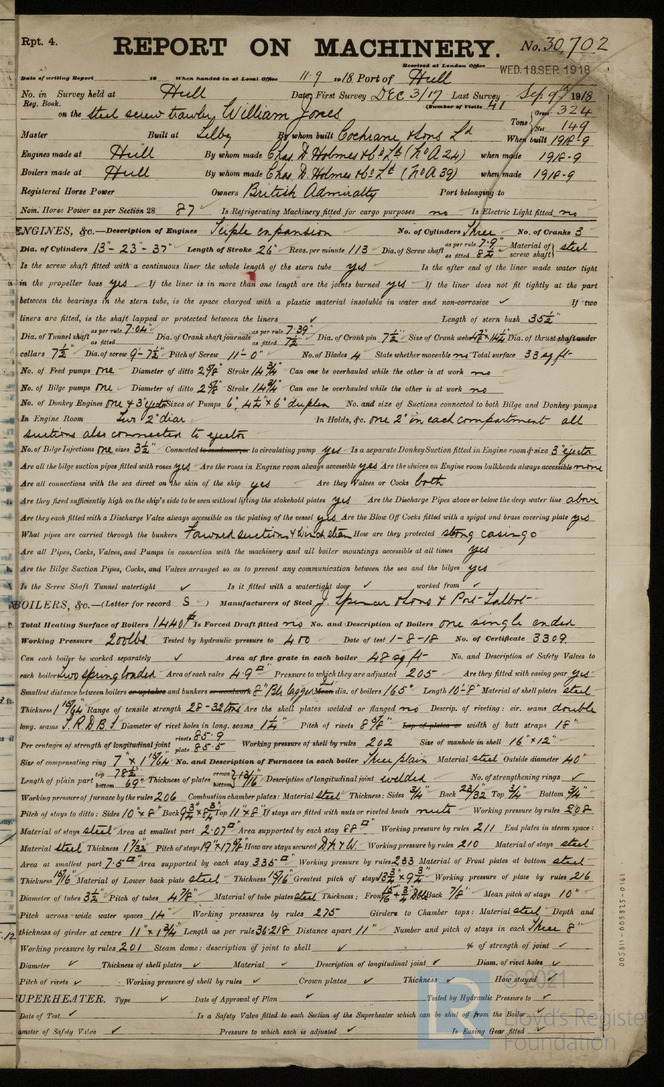 Rpt. 4.
REPORT ON MACHINERY. No. 30,702
Received at London Office WED. 18 SEP. 1918
Date of writing Report 19 When handed in at Local Office 11.9.1918 Port of Hull
No. in Survey held at Hull Date, First Survey Dec 3/17 Last Survey Sep 9th 1918
Reg. Book. (Number of Visits 41
on the steel screw trawler William Jones Tons { Gross 324
Net 149
Master Built at Selby By whom built Cochrane & Sons Ld When built 1918-9
Engines made at Hull By whom made Chas. D. Holmes & Co Ld (No A 24) when made 1918-9
Boilers made at Hull By whom made Chas. D. Holmes & Co Ld (No A 39) when made 1918-9
Registered Horse Power Owners British Admiralty Port belonging to
Nom. Horse Power as per Section 28 87 Is Refrigerating Machinery fitted for cargo purposes no Is Electric Light fitted no
ENGINES, &c.—Description of Engines Triple expansion No. of Cylinders Three No. of Cranks 3
Dia. of Cylinders 13"-23"-37" Length of Stroke 26" Revs. per minute 113 Dia. of Screw shaft as per rule 7.9" as fitted 8¼" Material of screw shaft steel
Is the screw shaft fitted with a continuous liner the whole length of the stern tube yes Is the after end of the liner made water tight
in the propeller boss yes If the liner is in more than one length are the joints burned yes If the liner does not fit tightly at the part
between the bearings in the stern tube, is the space charged with a plastic material insoluble in water and non-corrosive ✓ If two
liners are fitted, is the shaft lapped or protected between the liners ✓ Length of stern bush 35½"
Dia. of Tunnel shaft as per rule 7.04" as fitted Dia. of Crank shaft journals as per rule 7.39" as fitted 7½" Dia. of Crank pin 7½" Size of Crank webs Dia. of thrust shaft under
collars 7½" Dia. of screw 9-7½" Pitch of Screw 11-0" No. of Blades 4 State whether moveable no Total surface 33 sq ft
No. of Feed pumps one Diameter of ditto 2⅝" Stroke 14¾" Can one be overhauled while the other is at work no
No. of Bilge pumps one Diameter of ditto 2⅝" Stroke 14¾" Can one be overhauled while the other is at work no
No. of Donkey Engines one & 3" ejector Sizes of Pumps 6", 4½" x 6" duplex No. and size of Suctions connected to both Bilge and Donkey pumps
In Engine Room Two 2" diar In Holds, &c. one 2" in each compartment all
suctions also connected to ejector
No. of Bilge Injections one sizes 3½" Connected to condenser or to circulating pump yes Is a separate Donkey Suction fitted in Engine room & size 3" ejector
Are all the bilge suction pipes fitted with roses yes Are the roses in Engine room always accessible yes Are the sluices on Engine room bulkheads always accessible none
Are all connections with the sea direct on the skin of the ship yes Are they Valves or Cocks both
Are they fixed sufficiently high on the ship's side to be seen without lifting the stokehold plates yes Are the Discharge Pipes above or below the deep water line above
Are they each fitted with a Discharge Valve always accessible on the plating of the vessel yes Are the Blow Off Cocks fitted with a spigot and brass covering plate yes
What pipes are carried through the bunkers Forward suction & winch steam How are they protected strong casings
Are all Pipes, Cocks, Valves, and Pumps in connection with the machinery and all boiler mountings accessible at all times yes
Are the Bilge Suction Pipes, Cocks, and Valves arranged so as to prevent any communication between the sea and the bilges yes
Is the Screw Shaft Tunnel watertight ✓ Is it fitted with a watertight door ✓ worked from ✓
BOILERS, &c.—(Letter for record S ) Manufacturers of Steel J. Spencer & Sons & Port Talbot
Total Heating Surface of Boilers 1440 Is Forced Draft fitted no No. and Description of Boilers one single ended
Working Pressure 200 lbs Tested by hydraulic pressure to 400 Date of test 1-8-18 No. of Certificate 3309
Can each boiler be worked separately ✓ Area of fire grate in each boiler 48 sq ft No. and Description of Safety Valves to
each boiler two spring loaded Area of each valve 4.9" Pressure to which they are adjusted 205 Are they fitted with easing gear yes
Smallest distance between boilers or uptakes and bunkers or woodwork 8" Mean dia. of boilers 165" Length 10-8" Material of shell plates steel
Thickness Range of tensile strength 28-32 tons Are the shell plates welded or flanged no Descrip. of riveting: cir. seams double
long. seams T.R.D.B.S Diameter of rivet holes in long. seams 1¼" Pitch of rivets Lap of plates or width of butt straps 18"
Per centages of strength of longitudinal joint rivets 85.9 plate 85.5 Working pressure of shell by rules 202 Size of manhole in shell 16" x 12"
Size of compensating ring No. and Description of Furnaces in each boiler Three plain Material steel Outside diameter 40"
Length of plain part top 78½" bottom 69" Thickness of plates crown bottom 13/16" Description of longitudinal joint welded No. of strengthening rings ✓
Working pressure of furnace by the rules 206 Combustion chamber plates: Material steel Thickness: Sides ¾" Back 23/32 Top ¾" Bottom ¾"
Pitch of stays to ditto: Sides 10" x 8" Back Top 11" x 8" If stays are fitted with nuts or riveted heads nuts Working pressure by rules 208
Material of stays steel Area at smallest part 2.07" Area supported by each stay 88" Working pressure by rules 211 End plates in steam space:
Material steel Thickness 1 7/32 Pitch of stays How are stays secured D.N & W Working pressure by rules 210 Material of stays steel
Area at smallest part 7.5" Area supported by each stay 335" Working pressure by rules 233 Material of Front plates at bottom steel
Thickness 15/16" Material of Lower back plate steel Thickness 15/16" Greatest pitch of stays 13¾" x 9½" Working pressure of plate by rules 216
Diameter of tubes 3½" Pitch of tubes 4⅞" Material of tube plates steel Thickness: Front Back ⅞" Mean pitch of stays 10"
Pitch across wide water spaces 14" Working pressures by rules 275 Girders to Chamber tops: Material steel Depth and
thickness of girder at centre 11" x 1¾" Length as per rule 36.218 Distance apart 11" Number and pitch of stays in each Three 8"
Working pressure by rules 201 Steam dome: description of joint to shell ✓ % of strength of joint ✓
Diameter ✓ Thickness of shell plates ✓ Material ✓ Description of longitudinal joint ✓ Diam. of rivet holes ✓
Pitch of rivets ✓ Working pressure of shell by rules ✓ Crown plates ✓ Thickness ✓ How stayed ✓
SUPERHEATER. Type ✓ Date of Approval of Plan ✓ Tested by Hydraulic Pressure to ✓
Date of Test ✓ Is a Safety Valve fitted to each Section of the Superheater which can be shut off from the Boiler ✓
ameter of Safety Valve ✓ Pressure to which each is adjusted ✓ Is Easing Gear fitted ✓
005811-005825-0161
© 2021
LR
Lloyd's Register
Foundation